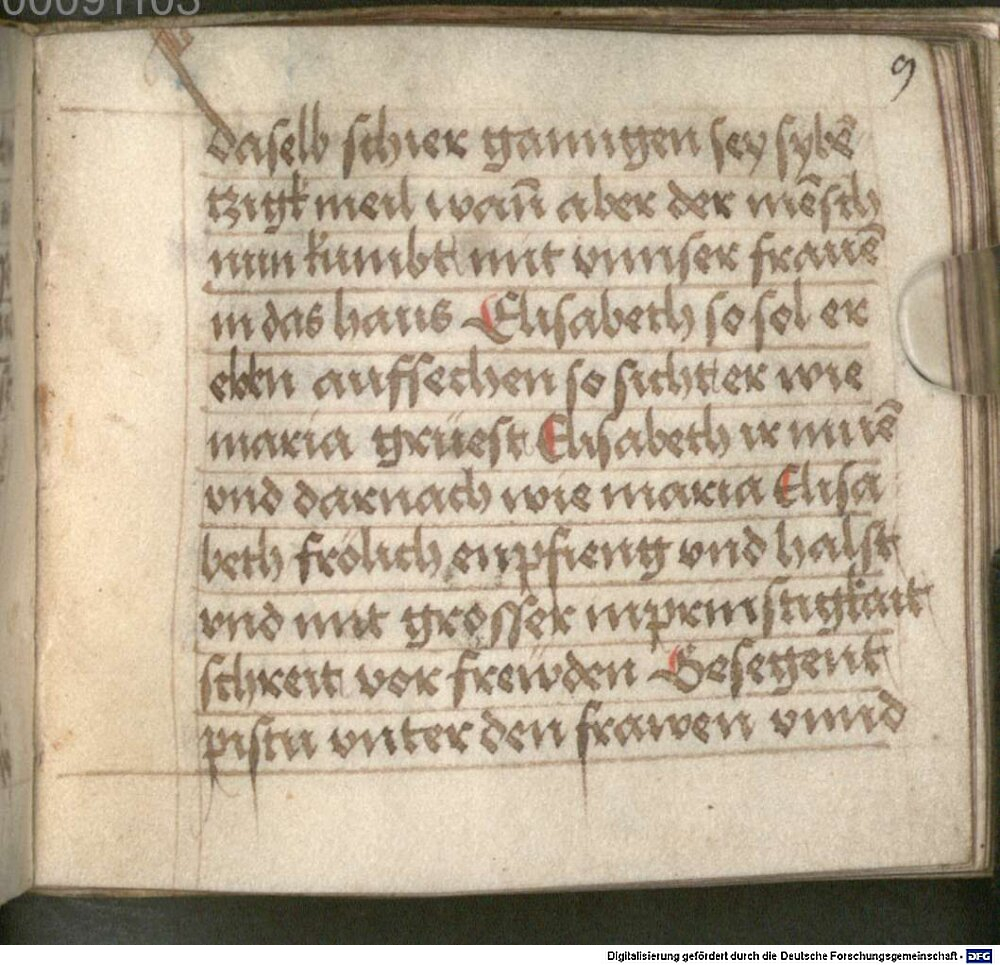 00091103
9
daselb schier ganngen sey sybē
tzigk meil wan̄ aber der mēsch
nun kumbt mit vnnser frauē
in das haus Elisabeth so sol er
eben auffsechen so sicht er wie
maria grüest Elisabeth ir muē
vnd darnach wie maria Elisa
beth frölich enpfieng vnd halst
vnd mit grosser inprinstigkait
schreit vor frewden Gesegent
pistu vnter den frawen vnnd
Digitalisierung gefördert durch die Deutsche Forschungsgemeinschaft - DFG